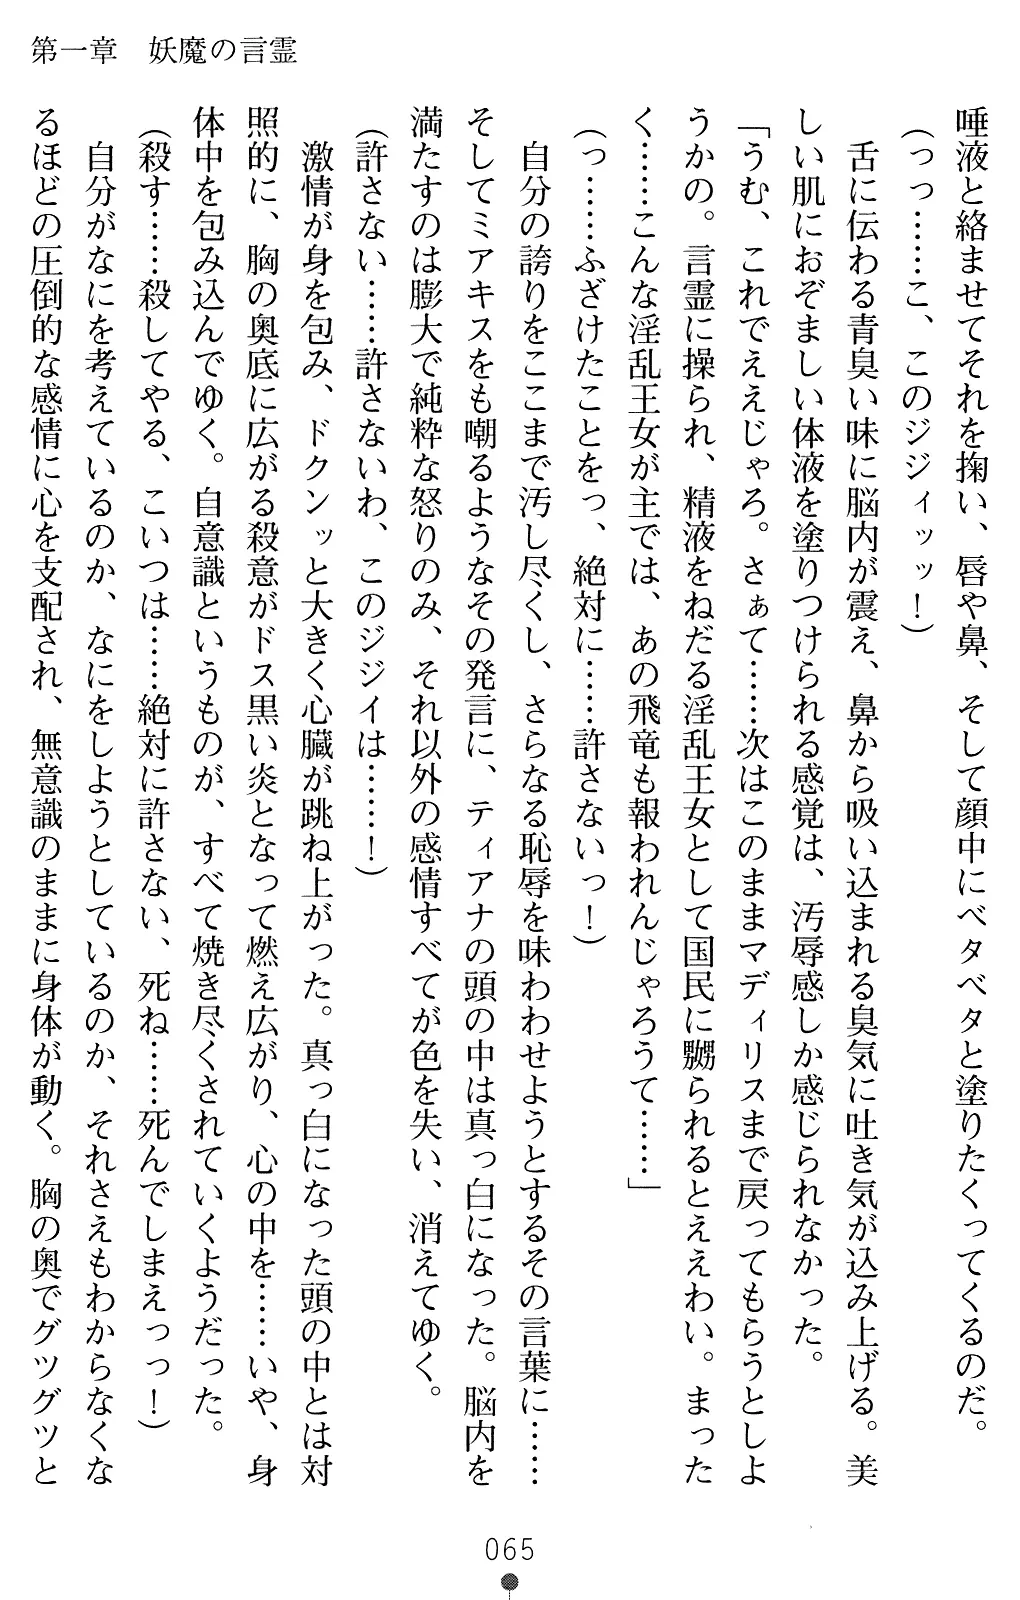 第一章　妖魔の言霊
唾液と絡ませてそれを掬い、唇や鼻、そして顔中にベタベタと塗りたくってくるのだ。
（っっ……こ、このジジィッッ！）
　舌に伝わる青臭い味に脳内が震え、鼻から吸い込まれる臭気に吐き気が込み上げる。美
しい肌におぞましい体液を塗りつけられる感覚は、汚辱感しか感じられなかった。
「うむ、これでええじゃろ。さぁて……次はこのままマディリスまで戻ってもらうとしよ
うかの。言霊に操られ、精液をねだる淫乱王女として国民に嬲られるとええわい。まった
く……こんな淫乱王女が主では、あの飛竜も報われんじゃろうて……」
（っ……ふざけたことをっ、絶対に……許さないっ！）
　自分の誇りをここまで汚し尽くし、さらなる恥辱を味わわせようとするその言葉に……
そしてミアキスをも嘲るようなその発言に、ティアナの頭の中は真っ白になった。脳内を
満たすのは膨大で純粋な怒りのみ、それ以外の感情すべてが色を失い、消えてゆく。
（許さない……許さないわ、このジジイは……！）
　激情が身を包み、ドクンッと大きく心臓が跳ね上がった。真っ白になった頭の中とは対
照的に、胸の奥底に広がる殺意がドス黒い炎となって燃え広がり、心の中を……いや、身
体中を包み込んでゆく。自意識というものが、すべて焼き尽くされていくようだった。
（殺す……殺してやる、こいつは……絶対に許さない、死ね……死んでしまえっっ！）
　自分がなにを考えているのか、なにをしようとしているのか、それさえもわからなくな
るほどの圧倒的な感情に心を支配され、無意識のままに身体が動く。胸の奥でグツグツと
065